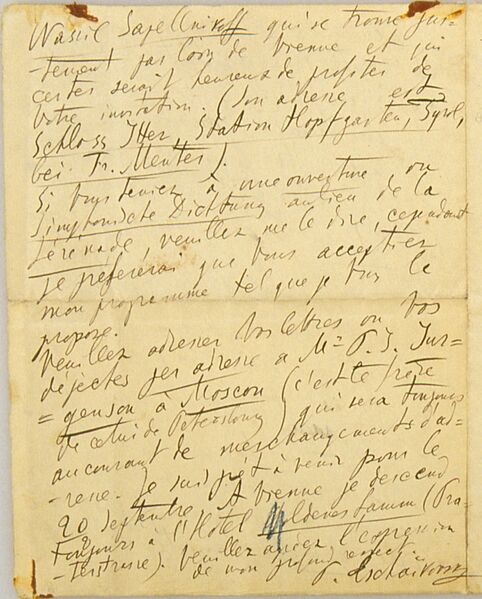 Wassil Sapellnikoff qui se trouve jus-
-tement pas loin de Vienne et qui
certes serait heureux de profiter de
Votre invitation. (Son adresse est
Schloss Itter, Station Hopfgarten, Tyrol,
bei Fr. Menter).
Si Vous teniez à une ouverture ou
Simfonische Dichtung au lieu de la
Sérénade, veuillez me le dire, cependant
je préférerai que Vous acceptiez
mon programme tel que je Vous le
propose.
Veuillez adresser Vos lettres ou Vos
dépeches per adresse a Mr P. J. Jur-
=genson à Moscou (c'est le frère
de celui de Petersbourg) qui sera toujours
au courant de mes changements d'ad-
-resse. Je suis prêt à venir pour le
20 Septembre. A Vienne je descend
toujours à l'Hotel Goldenes Lamm (Pra-
-terstrasse). Veuillez agréer l'expression
de mon profond respect.
P. Tschaïkovsky